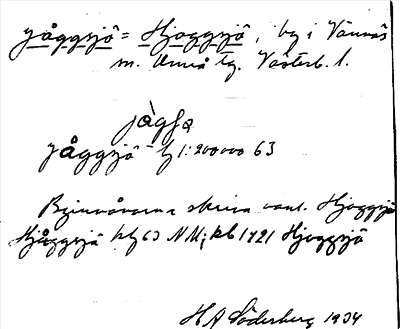 Yåggsjö = Hjoggsjö, by i Vännäs
sn. Umeå tg. Västerb. l.
jògſa
Yåggsjö - by 1:200000 63
Byinvånarna skriva vanl. Hjoggsjö
Hjåggsjö kbl 63 NU; kb 1721 Hjoggsjö
H A Söderberg 1934